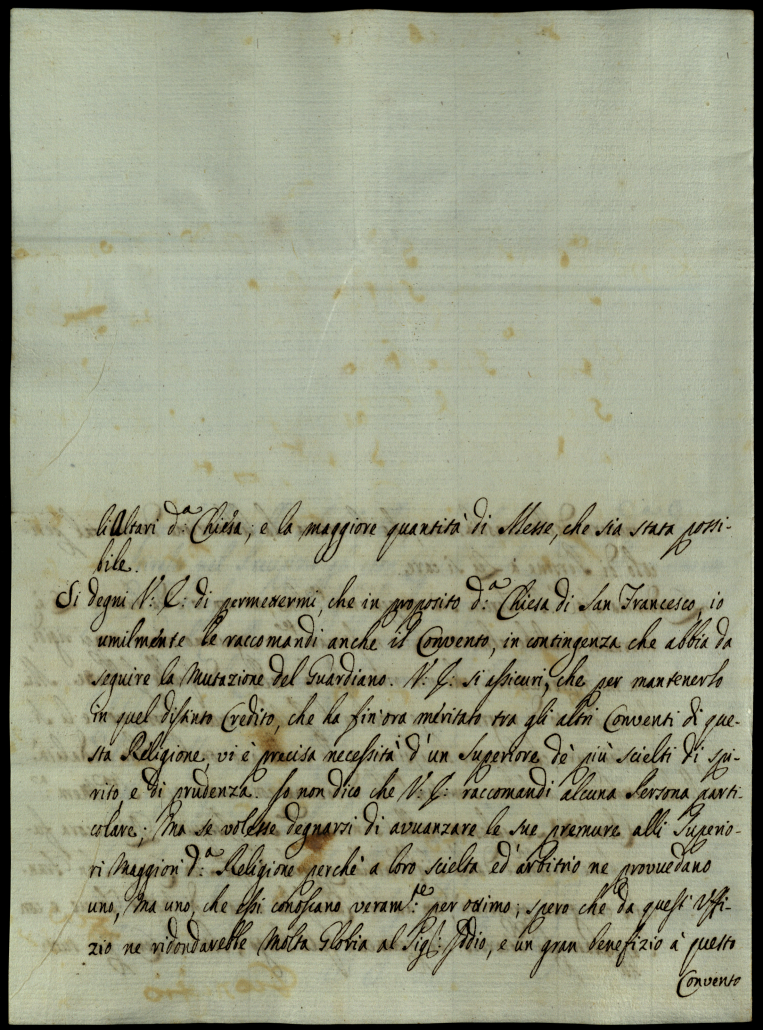 li Altari d.ª Chiesa; e la maggiore quantità di Messe, che sia stata possi-
bile.
Si degni V: E: di permetermi, che in proposito d.ª Chiesa di San Francesco, io
umilmente le raccomandi anche il Convento, in contingenza che abbia da
seguire la Mutazione del Guardiano. V: E: si assicuri, che per mantenerlo
in quel distinto Credito, che ha fin'ora meritato tra gli altri Conventi di que-
sta Religione, vi è precisa necessità d'un Superiore de più scielti di spi-
rito, e di prudenza. Io non dico che V: E: raccomandi alcuna Persona parti-
colare; Ma se volesse degnarsi di avuanzare le sue premure alli Superio-
ri Maggiori d.ª Religione perchè a loro scielta ed arbitrio ne provuedano
uno, Ma uno, che essi conoscano veram:te per ottimo; spero che da quest' Uffi-
zio ne ridondarebbe Molta Gloria al Sig:r Iddio, e un gran benefizio à questo
Convento